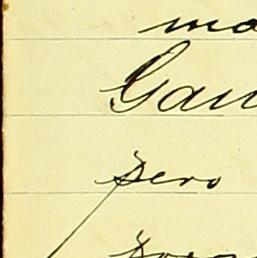 ma
Gau
pero